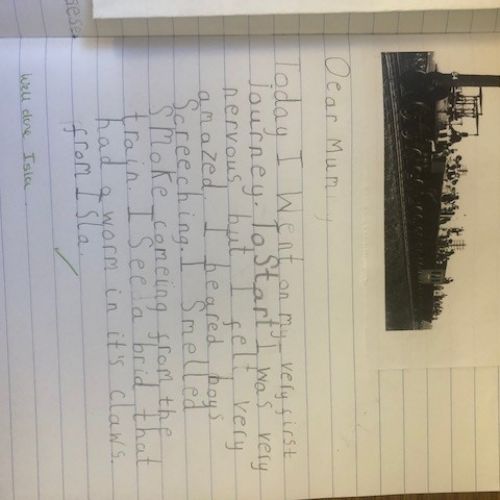 Dear Mum
Today I Went on my very first
journey. To Start I was very
nervous but I felt very
amazed. I heared boys
Screeching. I Smelled
Smoke comeing from the
train. I Seed a brid that
had a worm in it's claws.
from Isla.
Well done Isla.